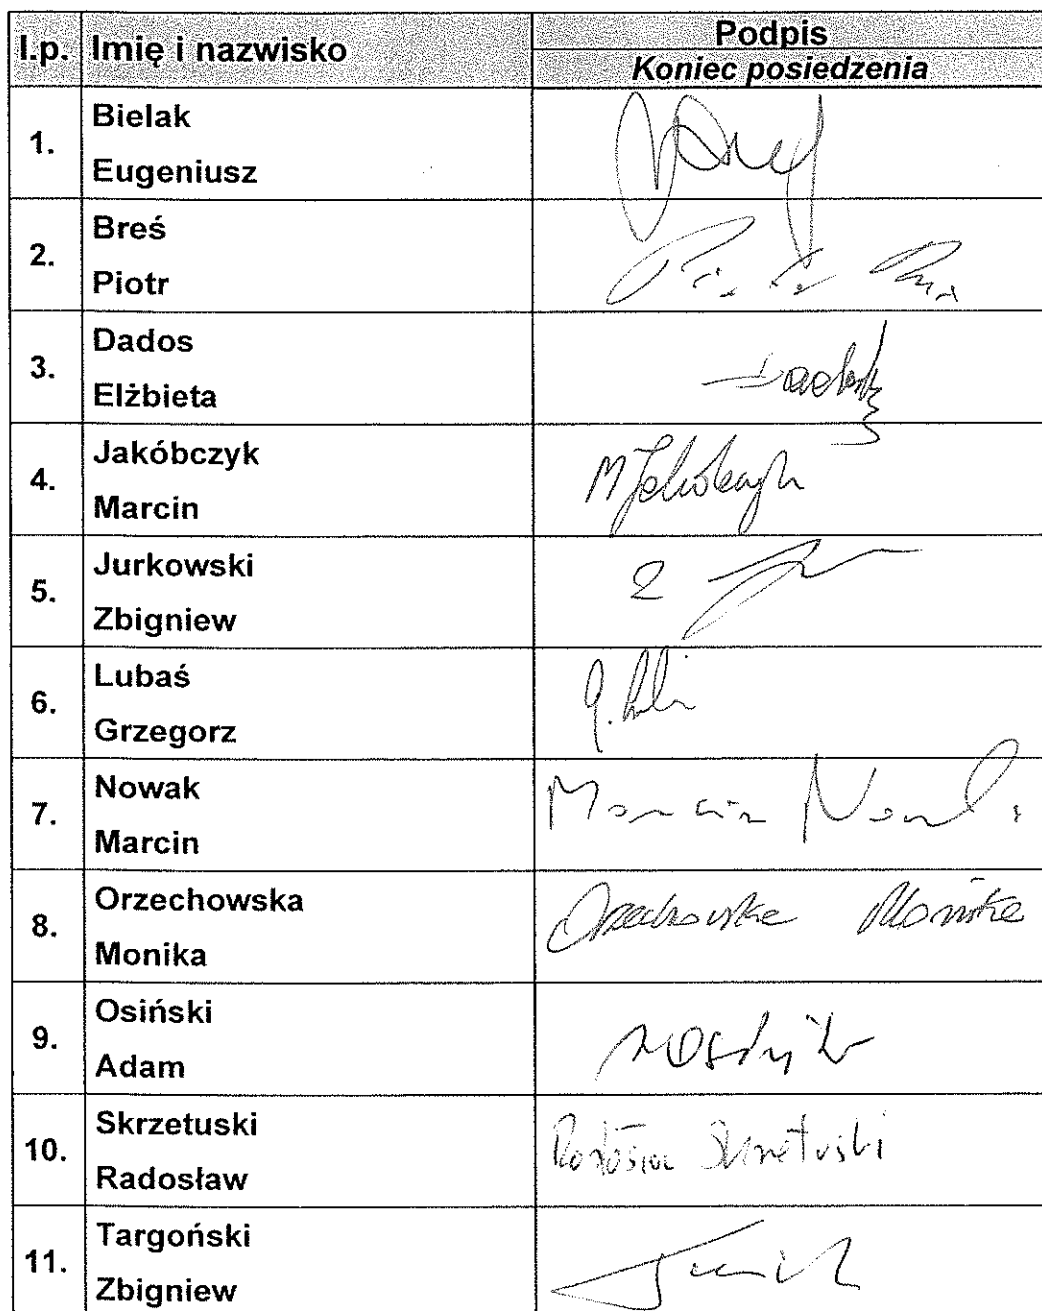 l.p. Imię i nazwisko Podpis
Koniec posiedzenia
1. Bielak
Eugeniusz
2. Breś
Piotr
3. Dados
Elżbieta
4. Jakóbczyk
Marcin
M Jakóbczyk
5. Jurkowski
Zbigniew
6. Lubaś
Grzegorz
7. Nowak
Marcin
Marcin Nowak
8. Orzechowska
Monika
Orzechowska Monika
9. Osiński
Adam
10. Skrzetuski
Radosław
Radosław Skrzetuski
11. Targoński
Zbigniew